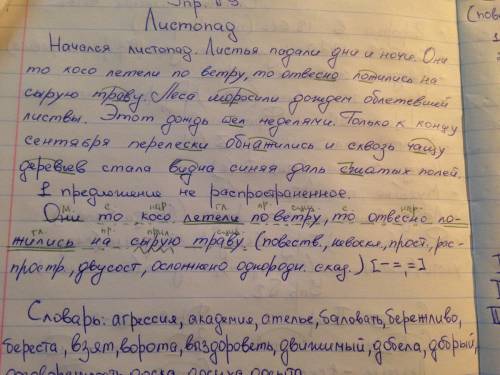 Упр. 69
Листопад
Начался листопад. Листья падали дни и ночи. Они
то косо летели по ветру, то отвесно ложились на
сырую траву. Леса моросили дождем облетевшей
листвы. Этот дождь шел неделями. Только к концу
сентября перелески обнажились и сквозь чащу
деревьев стала видна синяя даль сжатых полей.
1 предложение не распространенное.
м. с. нар. гл. пр. сущ. с. нар.
Они то косо летели по ветру, то отвесно ло-
гл. пр. прил. сущ.
жились на сырую траву. (повеств., невоскл., прост., рас-
простр., двусост., осложнено однородн. сказ.) [- =, =]
Словарь: агрессия, академия, ателье, баловать, бережливо,
береста, взят, ворота, выздороветь, движимый, добела, добрый,
(пов
1